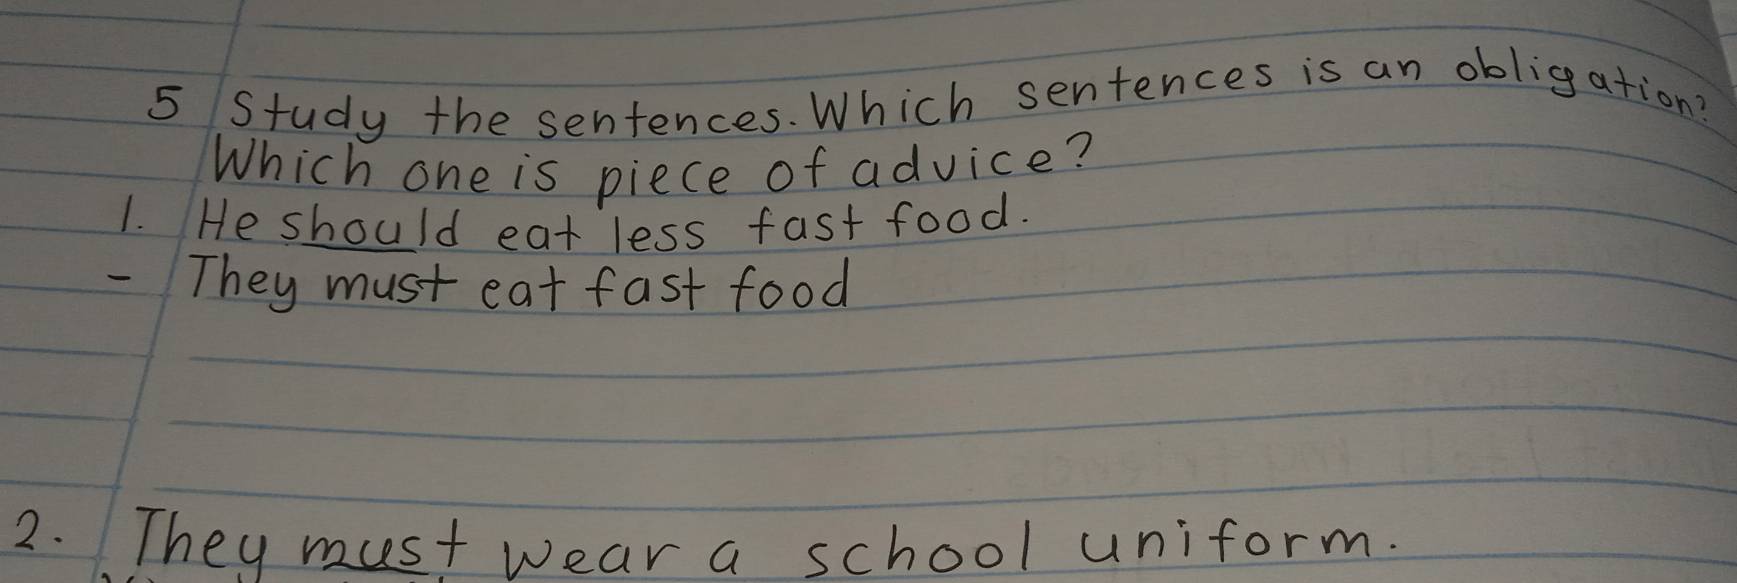 5 Study the sentences. Which sentences is an obligation?
Which one is piece of advice?
1. He should eat less fast food.
- They must eat fast food
2. They must wear a school uniform.